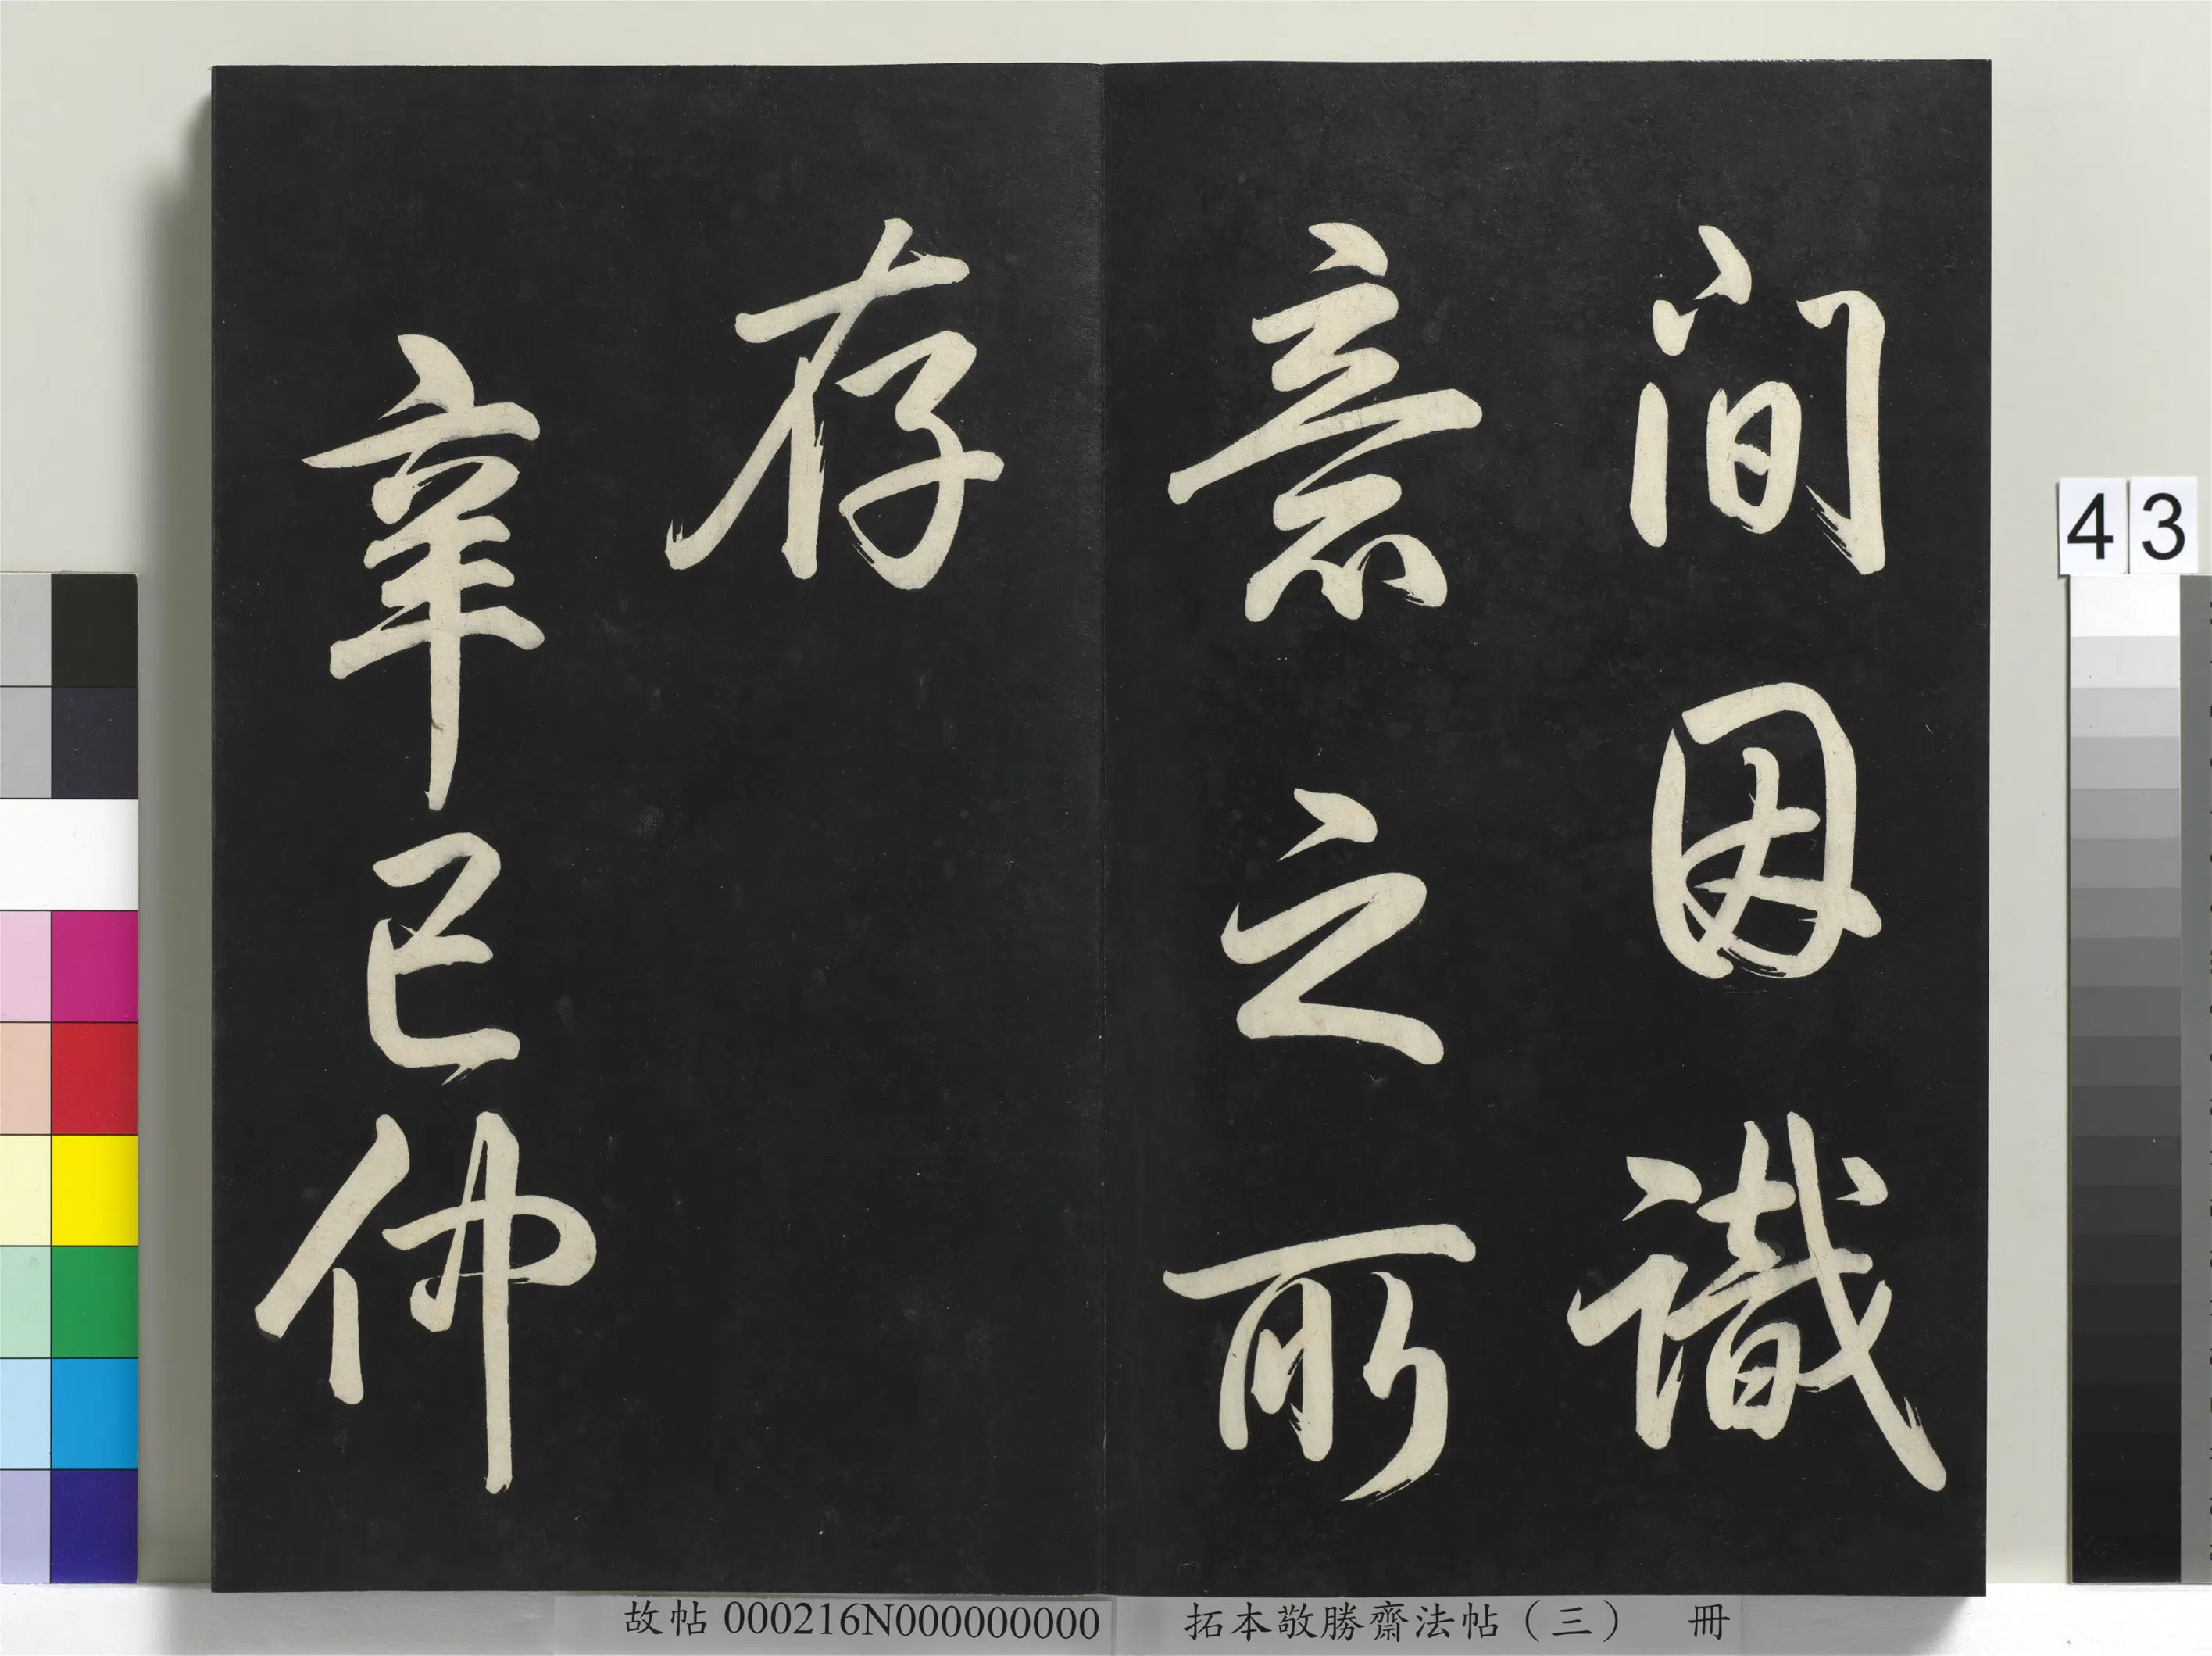 间因識
意之所
存
辛巳仲
43
故帖000216N000000000
拓本敬勝齋法帖（三） 冊